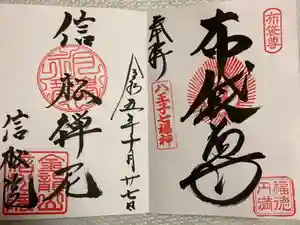 布袋尊
布袋尊
福徳円満
奉拝
八王子七福神
令和五年十月廿七日
信松禅尼
信松院
金龍山